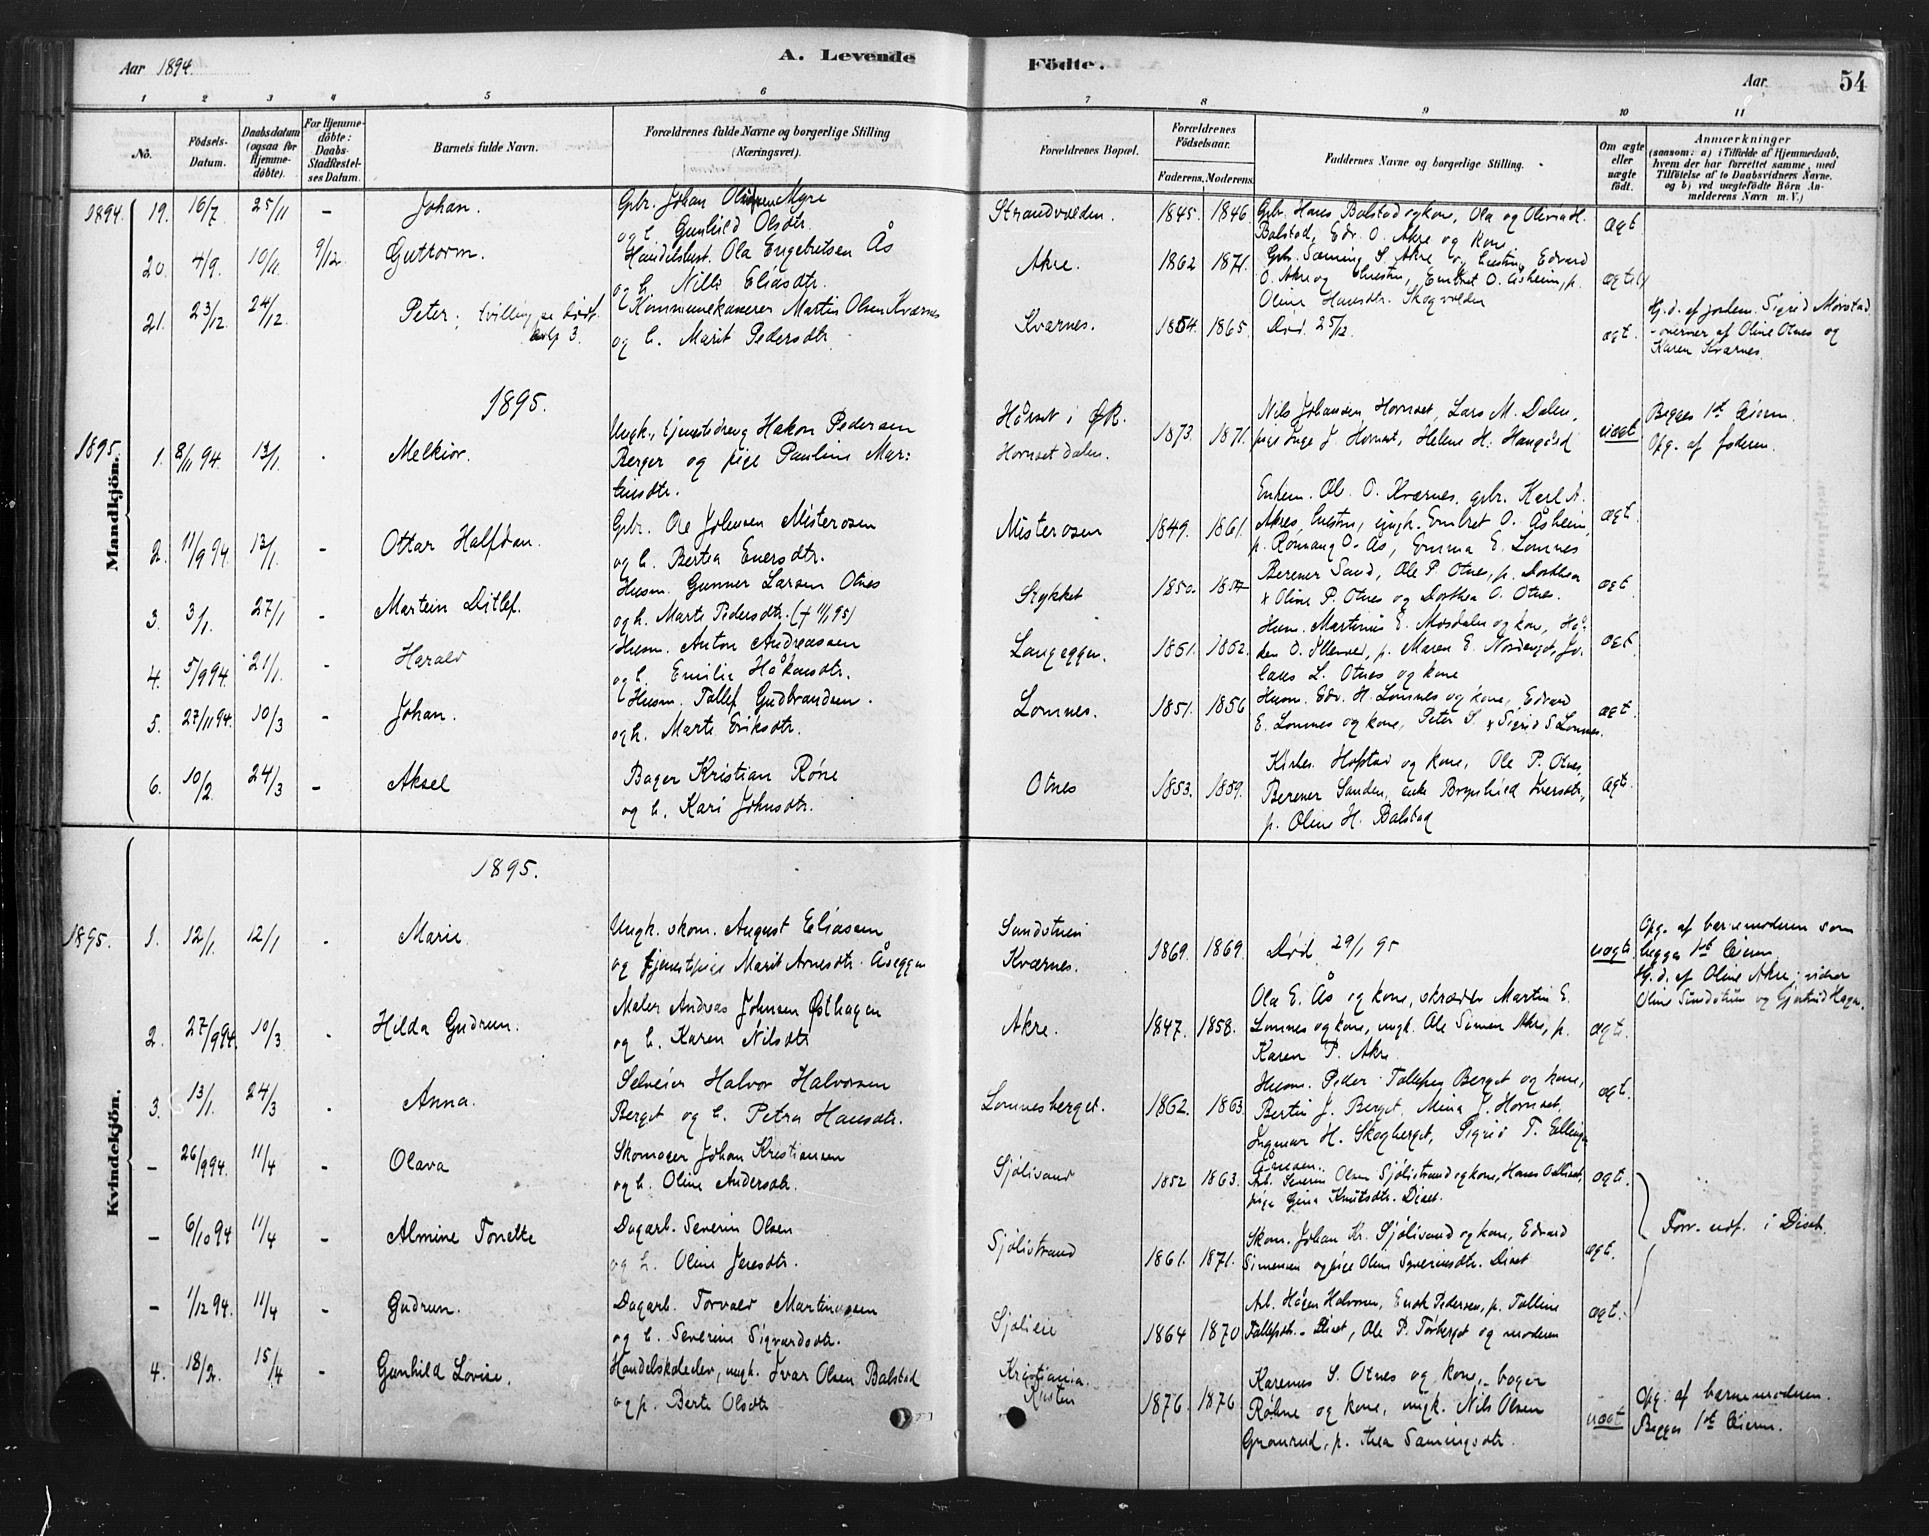 Aar 1894.
A. Levende
Födte.
Aar.
54
1 2 3 4 5 6 7 8 9 10 11
No.
Födsels-
Datum.
Daabsdatum
(ogsaa for
Hjemme-
döbte).
For Hjemme-
döbte:
Daabs-
Stadfæstel-
ses Datum.
Barnets fulde Navn.
Forældrenes fulde Navne og borgerlige Stilling
(Næringsvei).
Forældrenes Bopæl.
Forældrenes
Födselsaar.
Faderens. Moderens.
Faddernes Navne og borgerlige Stilling.
Om ægte
eller
uægte
födt.
Anmærkninger
(saasom: a) i Tilfælde af Hjemmedaab,
hvem der har forrettet samme, med
Tilföielse af to Daabsvidners Navne,
og b) ved uægtefödte Börn An-
melderens Navn m. V.)
Mandkjön.
1894. 19. 16/7 25/11 - Johan.
Gbr. Johan Olsen Myre
og h. Gunhild Olsdtr.
Strandvolden. 1845. 1846.
Gbr. Hans Balstad og kone, Ola og Olivia H.
Balstad, Edv. O. Akre og kone
ægt.
20. 4/9. 10/11. 9/12. Guttorm.
Handelsbest. Ola Engebritsen Ås
og h. Nille Eliasdtr.
Akre. 1862 1871.
Gbr. Sæming S. Akre og hustru, Edvard
O. Akre og hustru, Embret O. Åsheim, p.
Oline Hansdtr. Skogvolden
ægte
21. 23/12. 24/12. Peter, tvilling se dødf.
3.
Kommunekasserer Martin Olsen Kværnes
og h. Marit Pedersdtr.
Kvarnes. 1854. 1865. Død 25/12.
ægt.
Hj. d. af jordem. Sigrid Morstad
af Oline Otnes og
Karen Kvarnes.
1895.
1895. 1. 8/11 94. 13/1. Melkior.
Ungk., tjenestedreng Hakon Pedersen
Berger og pige Pauline Mar-
tinsdtr.
Hårset i ØR.
Hornset dalen.
1873. 1871.
Nils Johansen Hornset, Lars M. Dalen,
pige Inge J. Hornset, Helene H.
uægt
Begges 1st leierm.
Opg. af faderen.
2. 11/9 94. 13/1 - Ottar Halfdan.
Gbr. Ole Johnsen Misterosen
og h. Bertea Enersdtr.
Misterosen 1849. 1861.
Enkem. Ole O. Kværnes, gbr. Karl A.
Akres hustru, ungk. Embret O. Åsheim,
p. Romaug O. Ås, Emma E. Lomnes
ægt.
3. 3/1. 27/1 - Martein Ditlef.
Husm. Gunner Larsen Otnes
og h. Marte Pedersdtr. (+ 11/1 95)
Stykket 1850.
Berener Sand, Ole P. Otnes, p. Dorthea
x Oline P. Otnes og Dorthea O. Otnes.
ægt.
4. 5/9 94. 21/1 - Harald
Husm. Anton Andreassen
og h. Emilie Håkonsdtr.
Langeggen. 1851. 1862.
Husm. Martinus E. Mosdalen og kone, Hå-
, p. Maren E. Nordenget, Jo-
L. Otnes og kone
ægt.
5. 27/11 94. 10/3 - Johan.
Husm. Tollef Gudbrandsen.
og h. Marte Eriksdtr.
Lomnes. 1851. 1856
Husm. Edv. H. Lomnes og kone, Edvard
E. Lomnes og kone, Peter S. x Sigrid S. Lomnes.
ægt.
6. 10/2. 24/3 - Aksel
Bager Kristian Røne
og h. Kari Johnsdtr.
Otnes 1853. 1859.
Kirkes. Hofstad og kone, Ole P. Otnes,
Berener Sanden, enke Brynhild Iversdtr.,
p. Oline H. Balstad
ægt.
Kvindekjön.
1895.
1895. 1. 12/1. 12/1 . Marie
Ungk. skom. August Eliasen
og tjenestepige Marit Arnesdtr. Åseggen
Sundstuen
Kværnes.
1869. 1869. Død 29/1 95
uægte
Opg. af barnemoderen som
begges 1st leierm.
Hj. d. af Oline Akre; vidner
Oline Sundstuen og Gjertrud Hagen.
2. 27/9 94. 10/3 . Hilda Gudrun.
Maler Andreas Johnsen Østhagen
og h. Karen Nilsdtr
Akre. 1847. 1858.
Ola E. Ås og kone, skrædder Martin E.
Lomnes og kone, ungk. Ole Simen Akre, p.
Karen P. Akre.
ægte.
3. 13/1. 24/3 . Anna.
Selveier Halvor Halvorsen
Berget og h. Petra Hansdtr.
Lomnesberget. 1862. 1863.
Husm. Peder Tollefsen Berget og kone,
Bertin J. Berget, Mina J. Hornset,
Ingmar H. Skogberget, Sigrid T.
ægt.
- 26/9 94. 11/4 - Olava
Skomager Johan Kristiansen
og h. Oline Andersdtr.
Sjølisand 1852 1863.
Arb. Severin Olsen Sjølistrand og kone, Hans
pige Gina Knutsdtr. Diset.
ægt.
- 6/10 94 11/4 - Almine Tonette
Dagarb. Severin Olsen
og h. Oline Jensdtr.
Sjølistrand 1861. 1871.
Skom. Johan Kr. Sjølisand og kone, Edvard
Simensen og pige Oline Syverinsdtr. Diset
ægt.
Forr. udf. i Diset.
- 1/12 94. 11/4 - Gudrun.
Dagarb. Torvald Martinussen
og h. Severine Sigvardsdtr.
Sjølien 1864 1870
Arb. Hågen Halvorsen, Enok Pedersen, p. Tolline
Tollefsdtr. Diset, Ole P. Torberget og moderen
ægt.
4. 18/2. 15/4 - Gunhild Lovise.
Handelskoleelev, ungk. Ivar Olsen Balstad
og p. Berte Olsdtr
Kristiania.
Kusten
1876. 1876
Karenus S. Otnes og kone, bager
Røhne og kone, ungk. Nils Olsen
Granrud, p. Thea Sæmingsdtr.
uægt
Opg. af barnemoderen.
Begges 1st leierm.